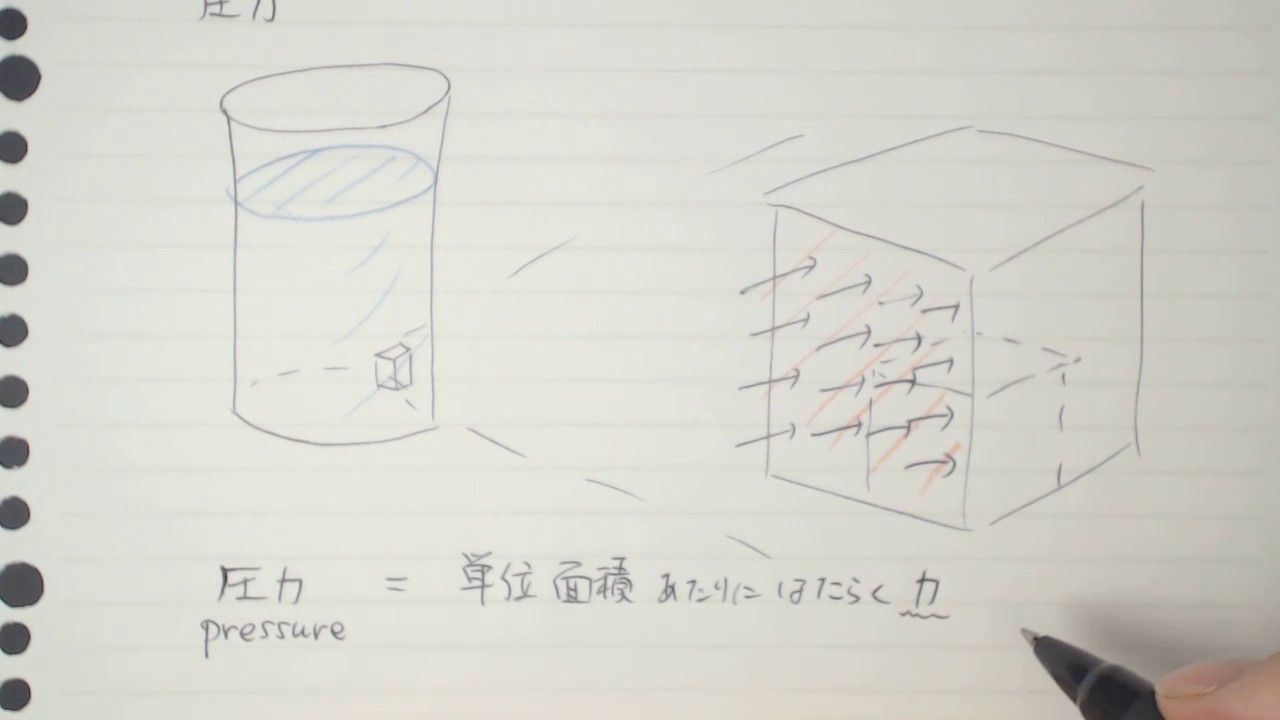 圧力
圧力 = 単位面積あたりにはたらく力
pressure